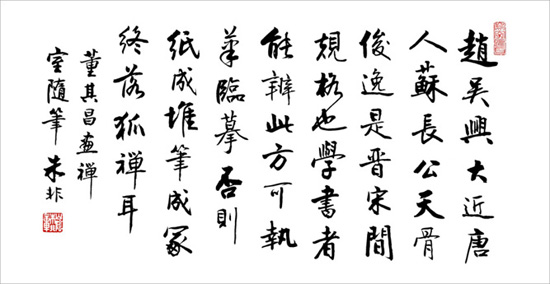 趙吴興大近唐
人蘇長公天骨
俊逸是晋宋間
規格也學書者
能辯此方可執
筆臨摹否則
紙成堆筆成冢
終落狐禅耳
董其昌画禅
室随筆朱非